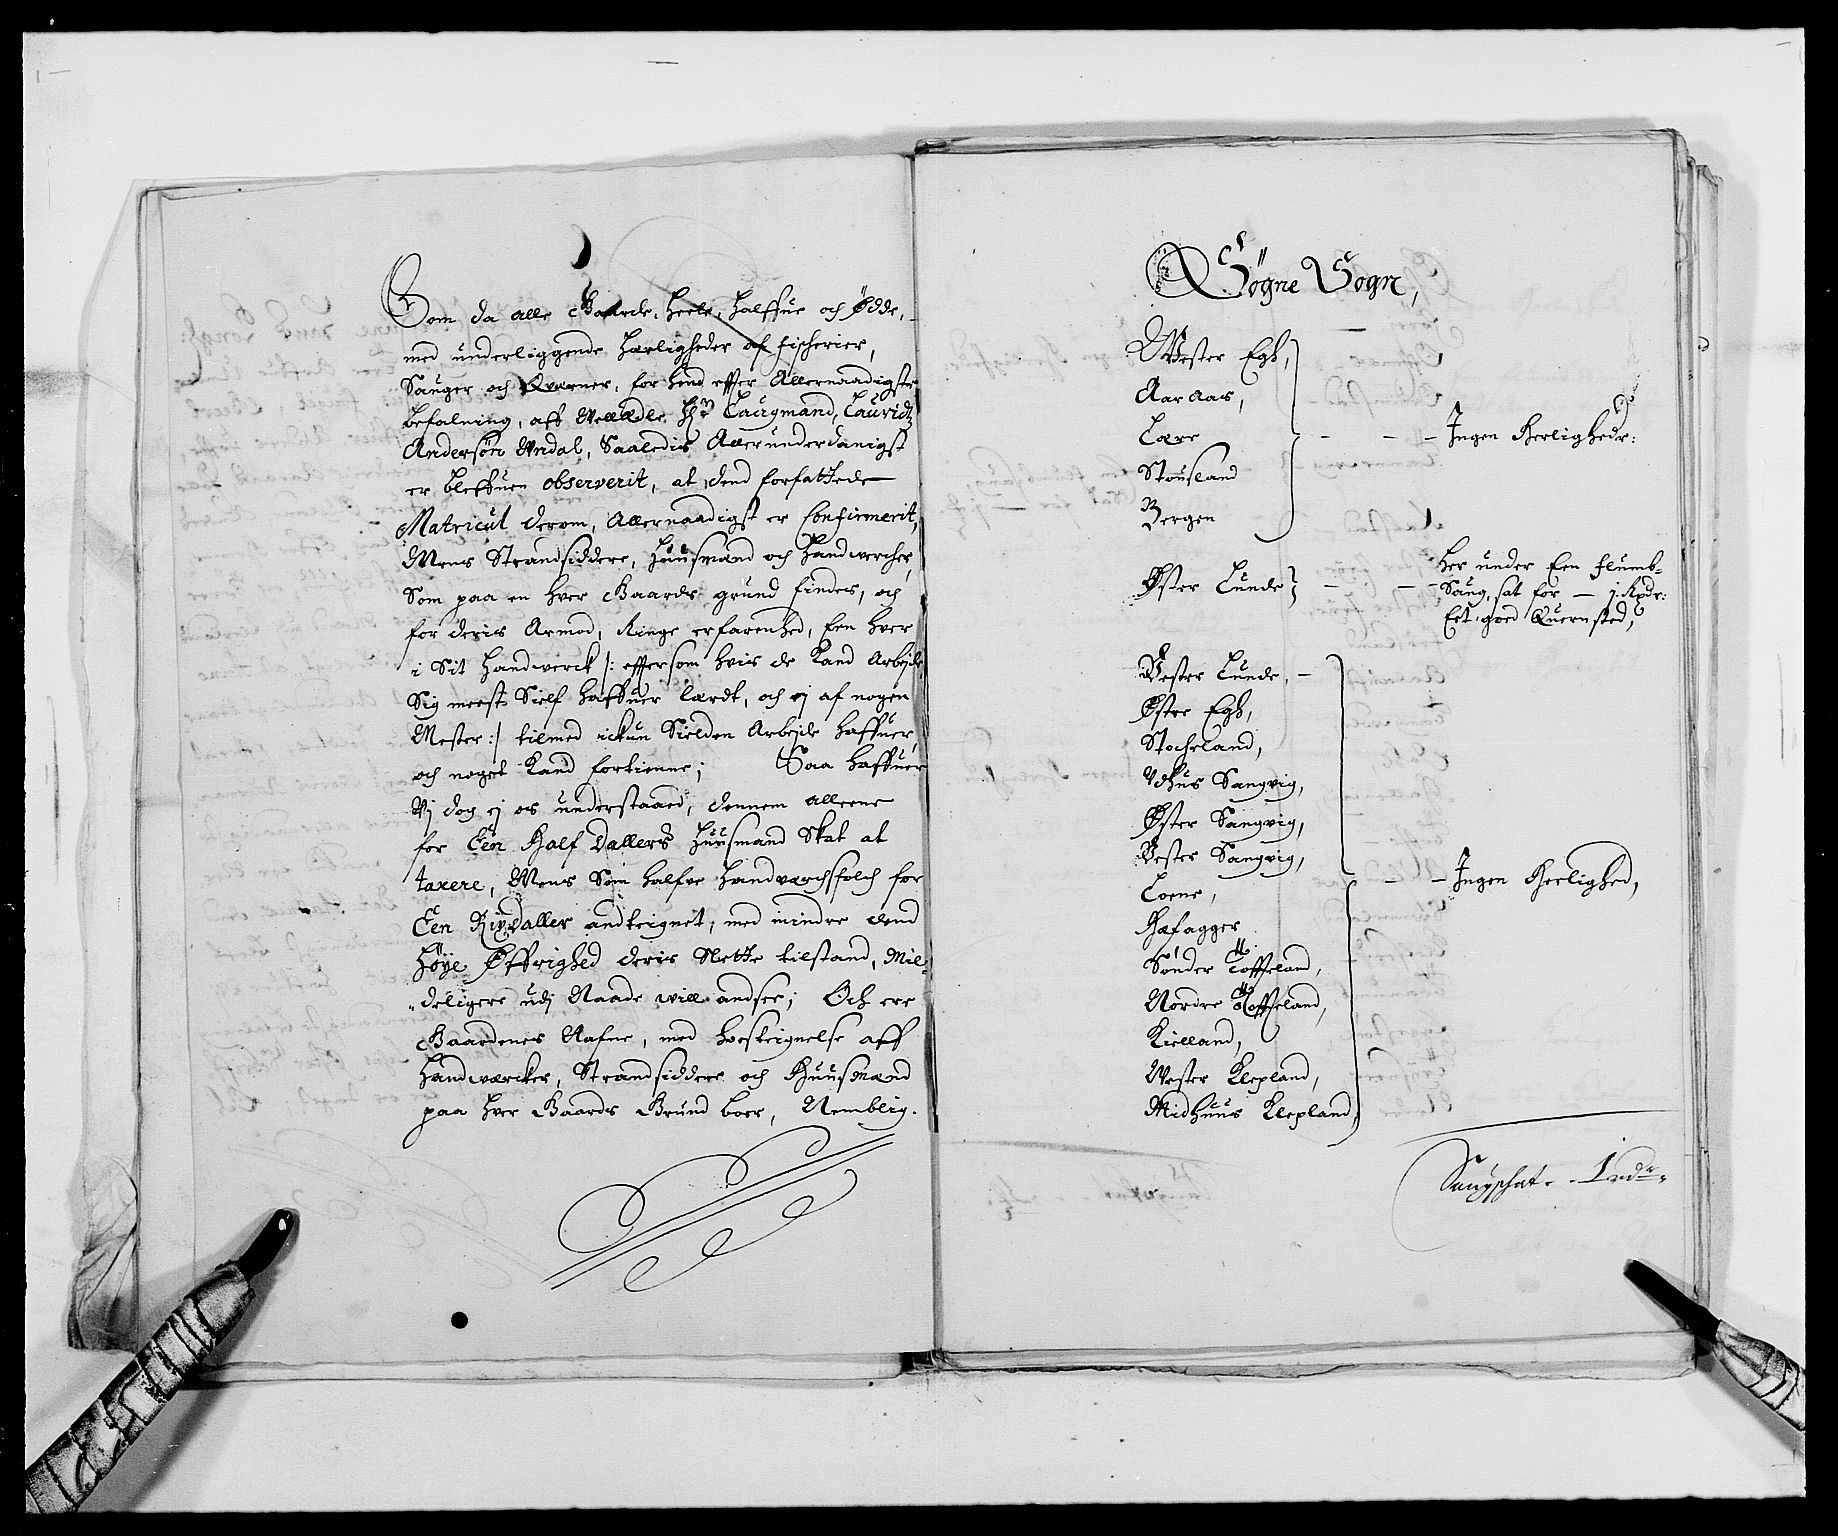 Som da alle Gaarde, Heele, Halffue och Ødde,
med underliggende Herligheder af fischerier,
Sauger och Quærner, for hend effter Allernaadigste
befalning, aff Welædle Hr Laugmand, Lauridtz
Andersøn Undal, Saaledis Allerunderdanigst
er bleffuen observerit, at dend forfattede
Matricul derom, Allernaadigst er Confirmerit,
Mens Strandsiddere, Huusmænd och Handwercher,
Som paa en hver Gaards grund findes, och
for deris Armod, Ringe erfarenhed, Een hver
i Sit Handwerck /: effersom hvis de Kand Arbejde
Sig meest Sielf haffuer lærdt, och ej af nogen
Mester :/ tilmed ickun Sielden Arbejde haffuer,
och noget Kand fortienne; Saa haffuer
Vj dog ej os understaaed, dennem alleene
for Een Half Dallers Huusmand Skat at
taxere, Mens Som halfve Handværchsfolch for
Een Rixdaller andteignet, med mindre dend
Høye Øffrighed deris Slette tilstand, Mil-
deligere udj Naade will andsee; Och ere
Gaardenes Nafne, med hosteignelse aff
Handwærcker, Strandsiddere och Huusmænd
paa hver Gaards Grund boer, Nemblig.
Søgne Sogn,
Wester Egh,
Aaraas,
Lære
Stousland
Bergen
Ingen Herligheder:
Øster Lunde
Her under Een flumb-
Saug, sat for — 1: Rxdr:
Eet goed Quernsted,
Vester Lunde,
Østre Egh,
Stocheland,
Udhus Sangvig,
Øster Sangvig,
Vester Sangvig,
Loene,
Hafagger
Sønder Toffteland,
Nordre Toffteland,
Kielland,
Wester Klepland,
Midhuus Klepland,
Ingen Herlighed,
Saugschat - 1 rdr